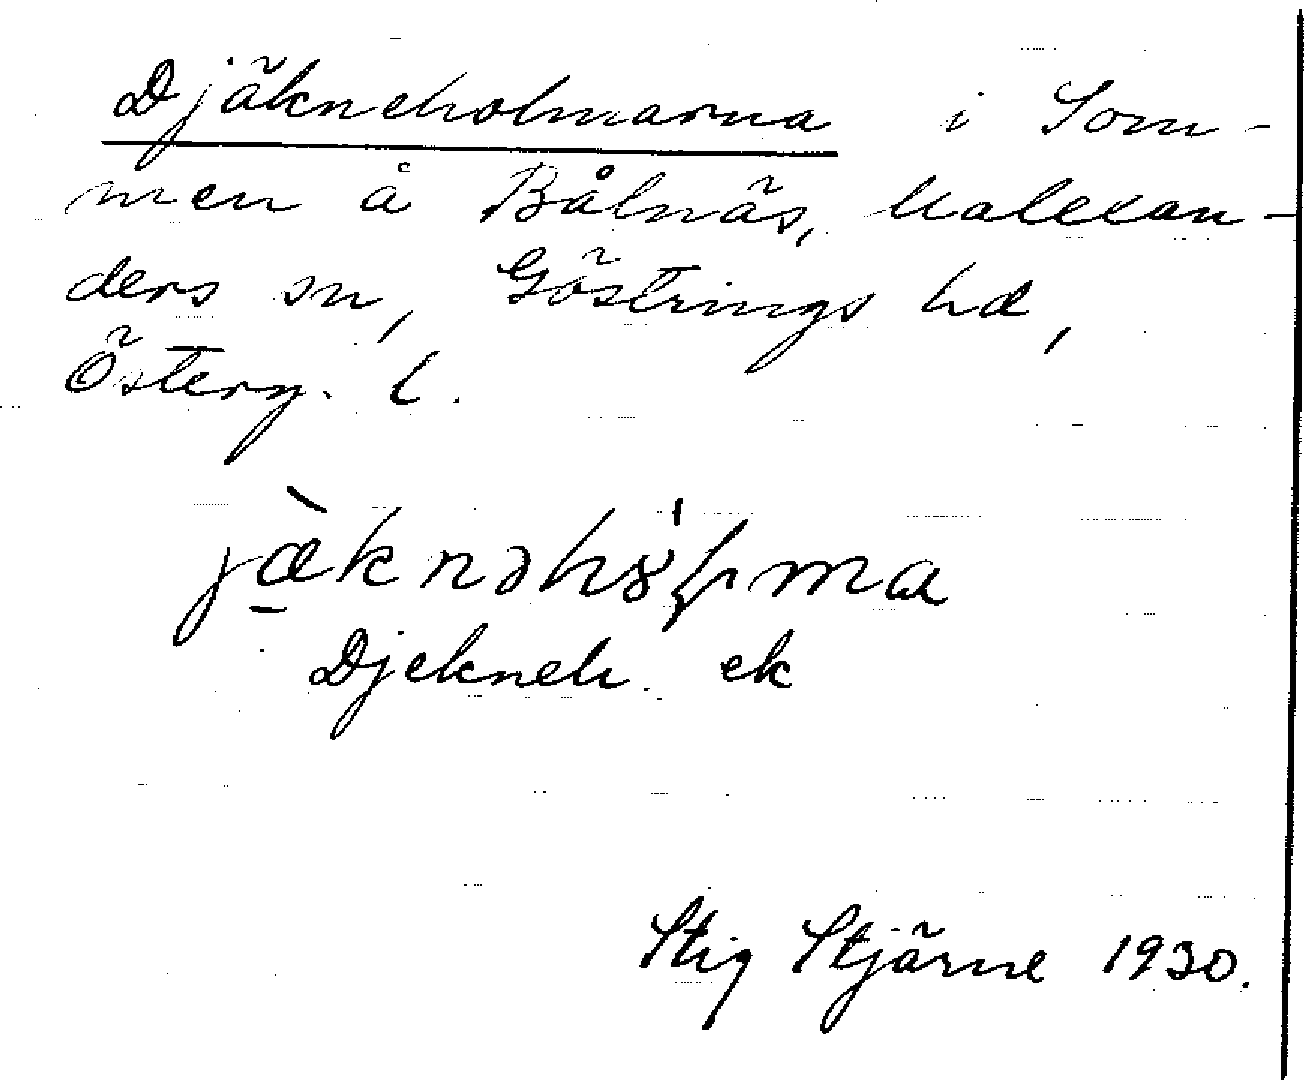 Djäkneholmarna i Som-
men å Bålnäs, Malexan-
ders sn, Göstrings hd,
Österg. l.
jæ̀knəhɞl̥ma
Djekneh. ek
Stig Stjärne 1930.